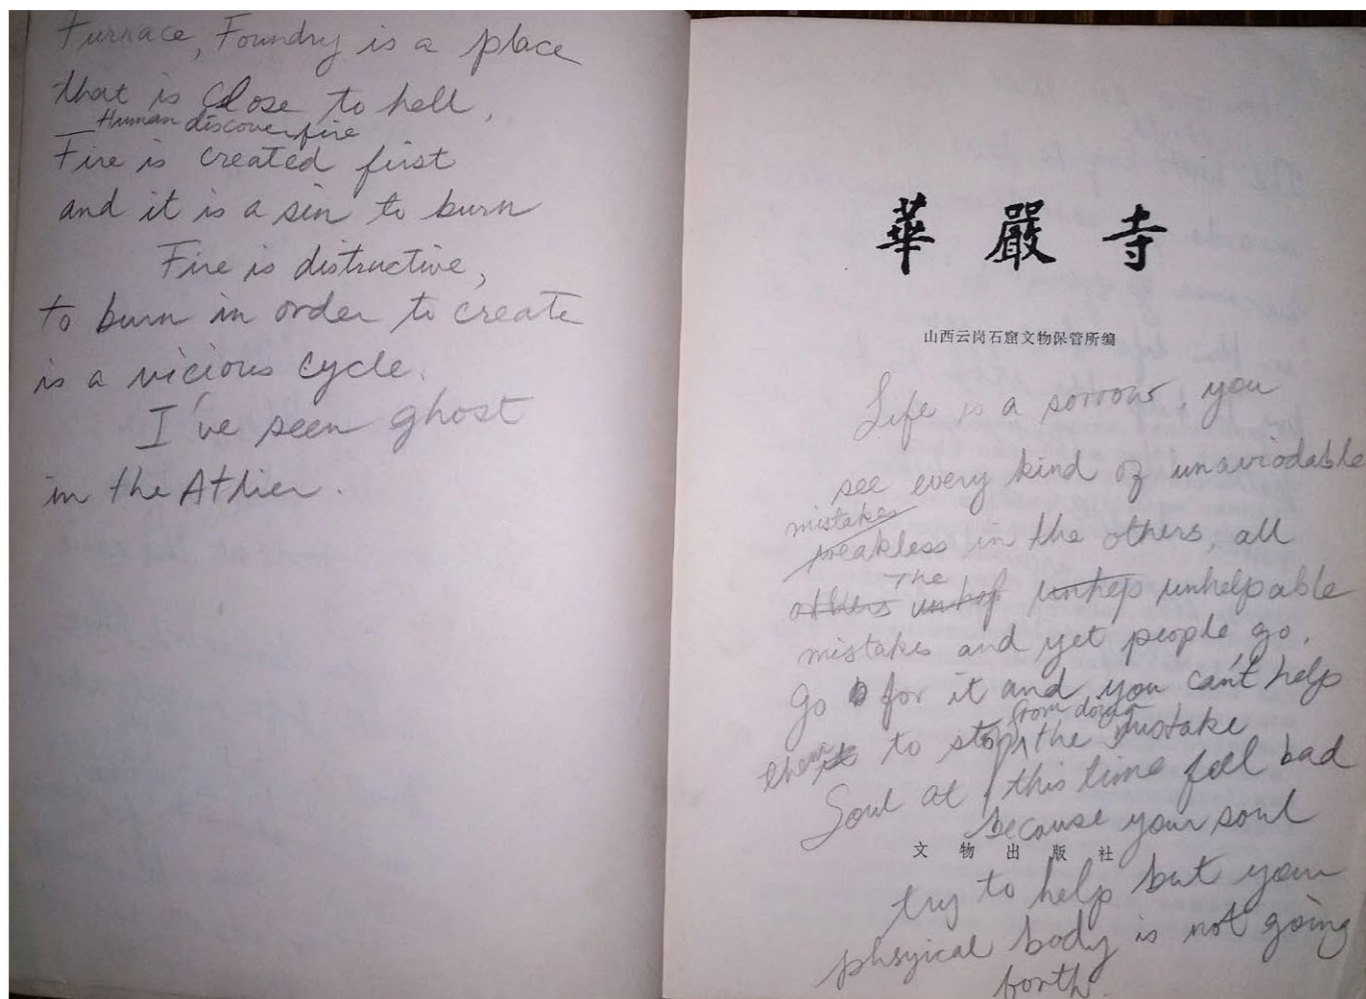 Furnace, Foundry is a place
that is Close to hell,
— Human discover fire
Fire is created first
and it is a sin to burn
Fire is distructive,
to burn in order to create
is a vicious cycle.
I've seen ghost
in the Atlier.
華嚴寺
山西云岗石窟文物保管所編
Life is a sorrow, you
see every kind of unaviodable
mistakes
weakless in the others, all
The
others unhep unhelpable
mistakes and yet people go,
go for it and you can't help
from doing
them to stop the mistake
Soul at this time feel bad
because your soul
文物出版社
try to help but your
phsyical body is not going
forth.